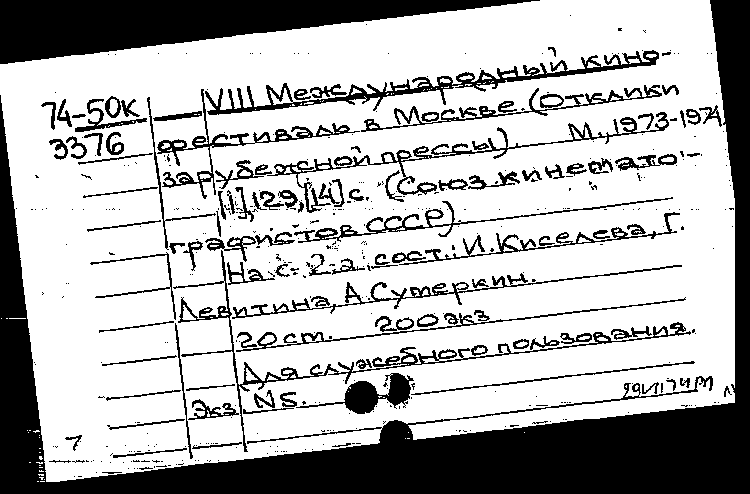 74-50к
3376
VIII Международный кино-
фестиваль в Москве. (Отклики
зарубежной прессы). М., 1973-1974
[1], 129, [14] с. (Союз кинемато-
графистов СССР).
На с. 2-а сост.: И. Киселева, Г.
Левитина, А. Сутеркин.
20 ст. 200 экз
Для служебного пользования.
Экз. N5.
7